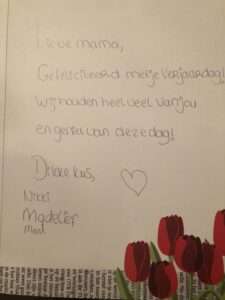 Lieve mama,
Gefeliciteerd met je verjaardag!
Wij houden heel veel van jou
en geniet van deze dag!
Dikke kus,
Nikki
Madelief